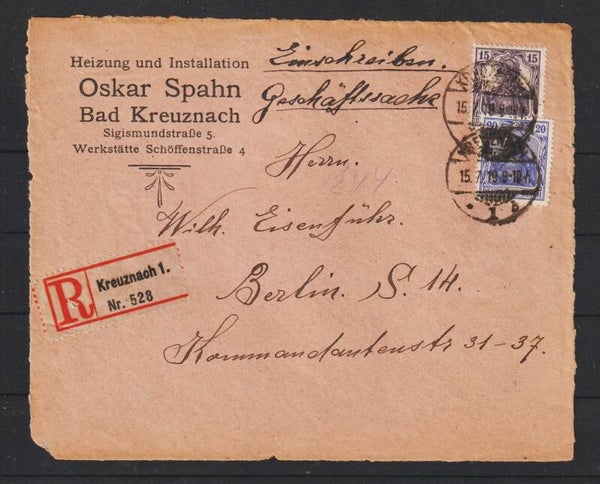 Heizung und Installation
Oskar Spahn
Bad Kreuznach
Sigismundstraße 5.
Werkstätte Schöffenstraße 4
Einschreiben.
Geschäftssache
15 15
15.7.19.9-10
20
15.7.19.9-10
* 1 b
Herrn.
Wilh. Eisenführ.
Berlin. S. 14.
Kommandantenstr 31-37.
R
Kreuznach 1.
Nr. 528